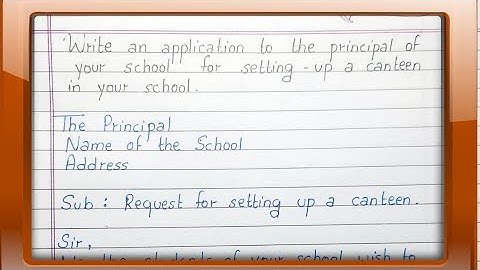 Write an application to the principal of
your school for setting-up a canteen
in your school.
The Principal
Name of the School
Address
Sub : Request for setting up a canteen.
Sir,
the students of your school wish to